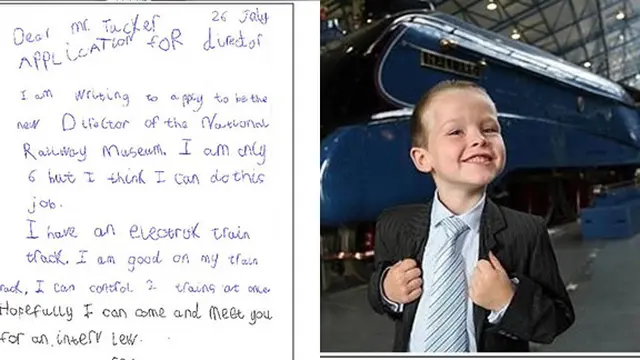 Dear Mr. Tucker 26 July
APPLICATION FOR director
I am writing to apply to be the
new Director of the National
Railway Museum. I am only
6 but I think I can do this
job.
I have an electrik train
track. I am good on my train
rack. I can control 2 trains at once
Hopefully I can come and meet you
for an interview.